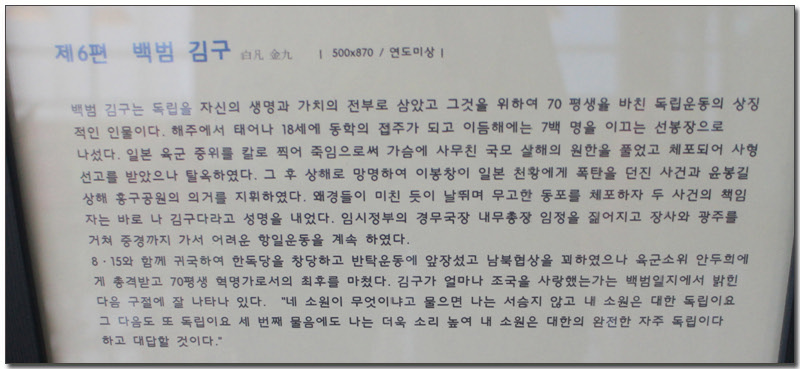 제6편 백범 김구 白凡 金九 | 500x870 / 연도미상 |
백범 김구는 독립을 자신의 생명과 가치의 전부로 삼았고 그것을 위하여 70 평생을 바친 독립운동의 상징
적인 인물이다. 해주에서 태어나 18세에 동학의 접주가 되고 이듬해에는 7백 명을 이끄는 선봉장으로
나섰다. 일본 육군 중위를 칼로 찍어 죽임으로써 가슴에 사무친 국모 살해의 원한을 풀었고 체포되어 사형
선고를 받았으나 탈옥하였다. 그 후 상해로 망명하여 이봉창이 일본 천황에게 폭탄을 던진 사건과 윤봉길
상해 홍구공원의 의거를 지휘하였다. 왜경들이 미친 듯이 날뛰며 무고한 동포를 체포하자 두 사건의 책임
자는 바로 나 김구다라고 성명을 내었다. 임시정부의 경무국장 내무총장 임정을 짊어지고 장사와 광주를
거쳐 중경까지 가서 어려운 항일운동을 계속 하였다.
8·15와 함께 귀국하여 한독당을 창당하고 반탁운동에 앞장섰고 남북협상을 꾀하였으나 육군소위 안두희에
게 총격받고 70평생 혁명가로서의 최후를 마쳤다. 김구가 얼마나 조국을 사랑했는가는 백범일지에서 밝힌
다음 구절에 잘 나타나 있다. "네 소원이 무엇이냐고 물으면 나는 서슴지 않고 내 소원은 대한 독립이요
그 다음도 또 독립이요 세 번째 물음에도 나는 더욱 소리 높여 내 소원은 대한의 완전한 자주 독립이다
하고 대답할 것이다."